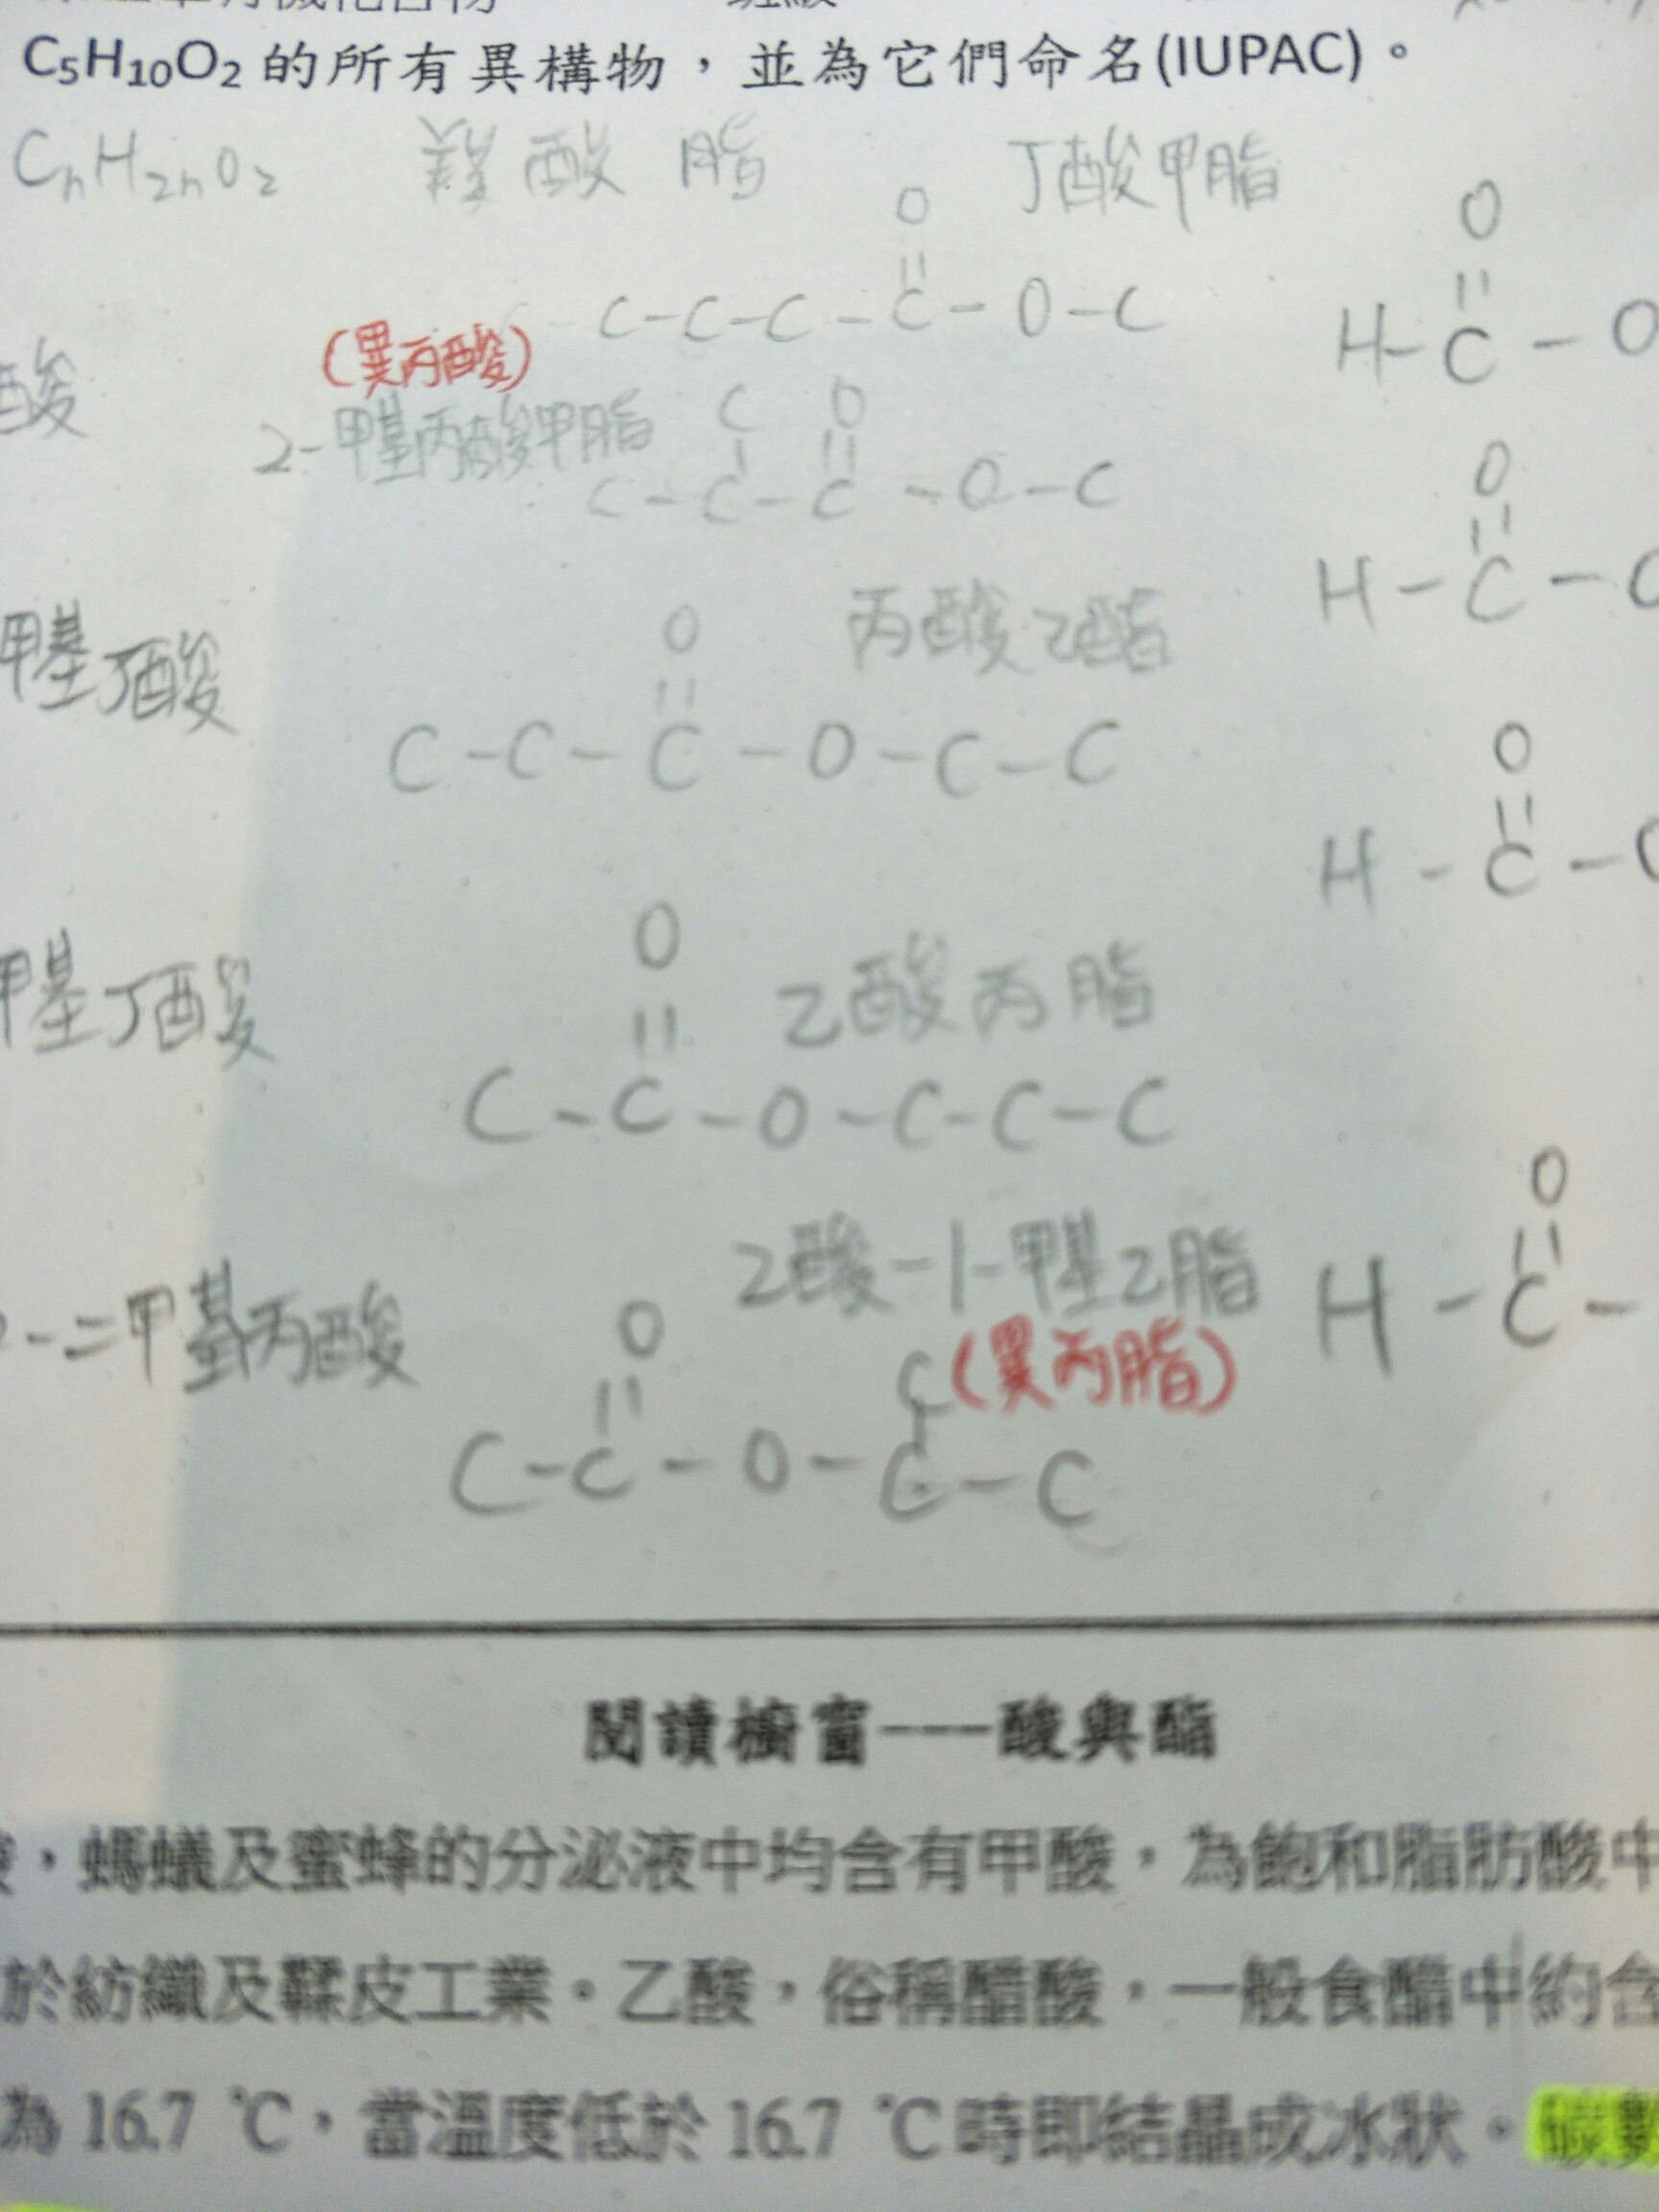 C5H10O2 的所有異構物，並為它們命名(IUPAC)。
CnH2nO2 羧酸 脂 丁酸甲脂
O O
C-C-C-C-O-C
H-C-O
(異丙酸)
酸
2-甲基丙酸甲脂
C O
C-C-C-O-C
O
H-C-
丙酸乙酯
O
甲基丁酸
C-C-C-O-C-C
O
H-C-
O
乙酸丙脂
甲基丁酸
C-C-O-C-C-C
O
乙酸-1-甲基乙脂
H-C-
-二甲基丙酸
O
C (異丙脂)
C-C-O-C-C
閱讀櫥窗---酸與酯
，螞蟻及蜜蜂的分泌液中均含有甲酸，為飽和脂肪酸中
於紡織及鞣皮工業。乙酸，俗稱醋酸，一般食醋中約含
為 16.7 ℃，當溫度低於 16.7 ℃時即結晶成冰狀。碳數